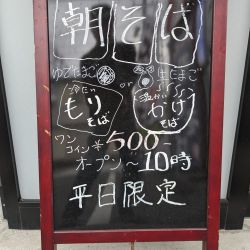 朝そば
ゆでたまご or 生たまご
冷たい もりそば
温かい かけそば
ワンコイン ¥500-
オープン〜10時
平日限定